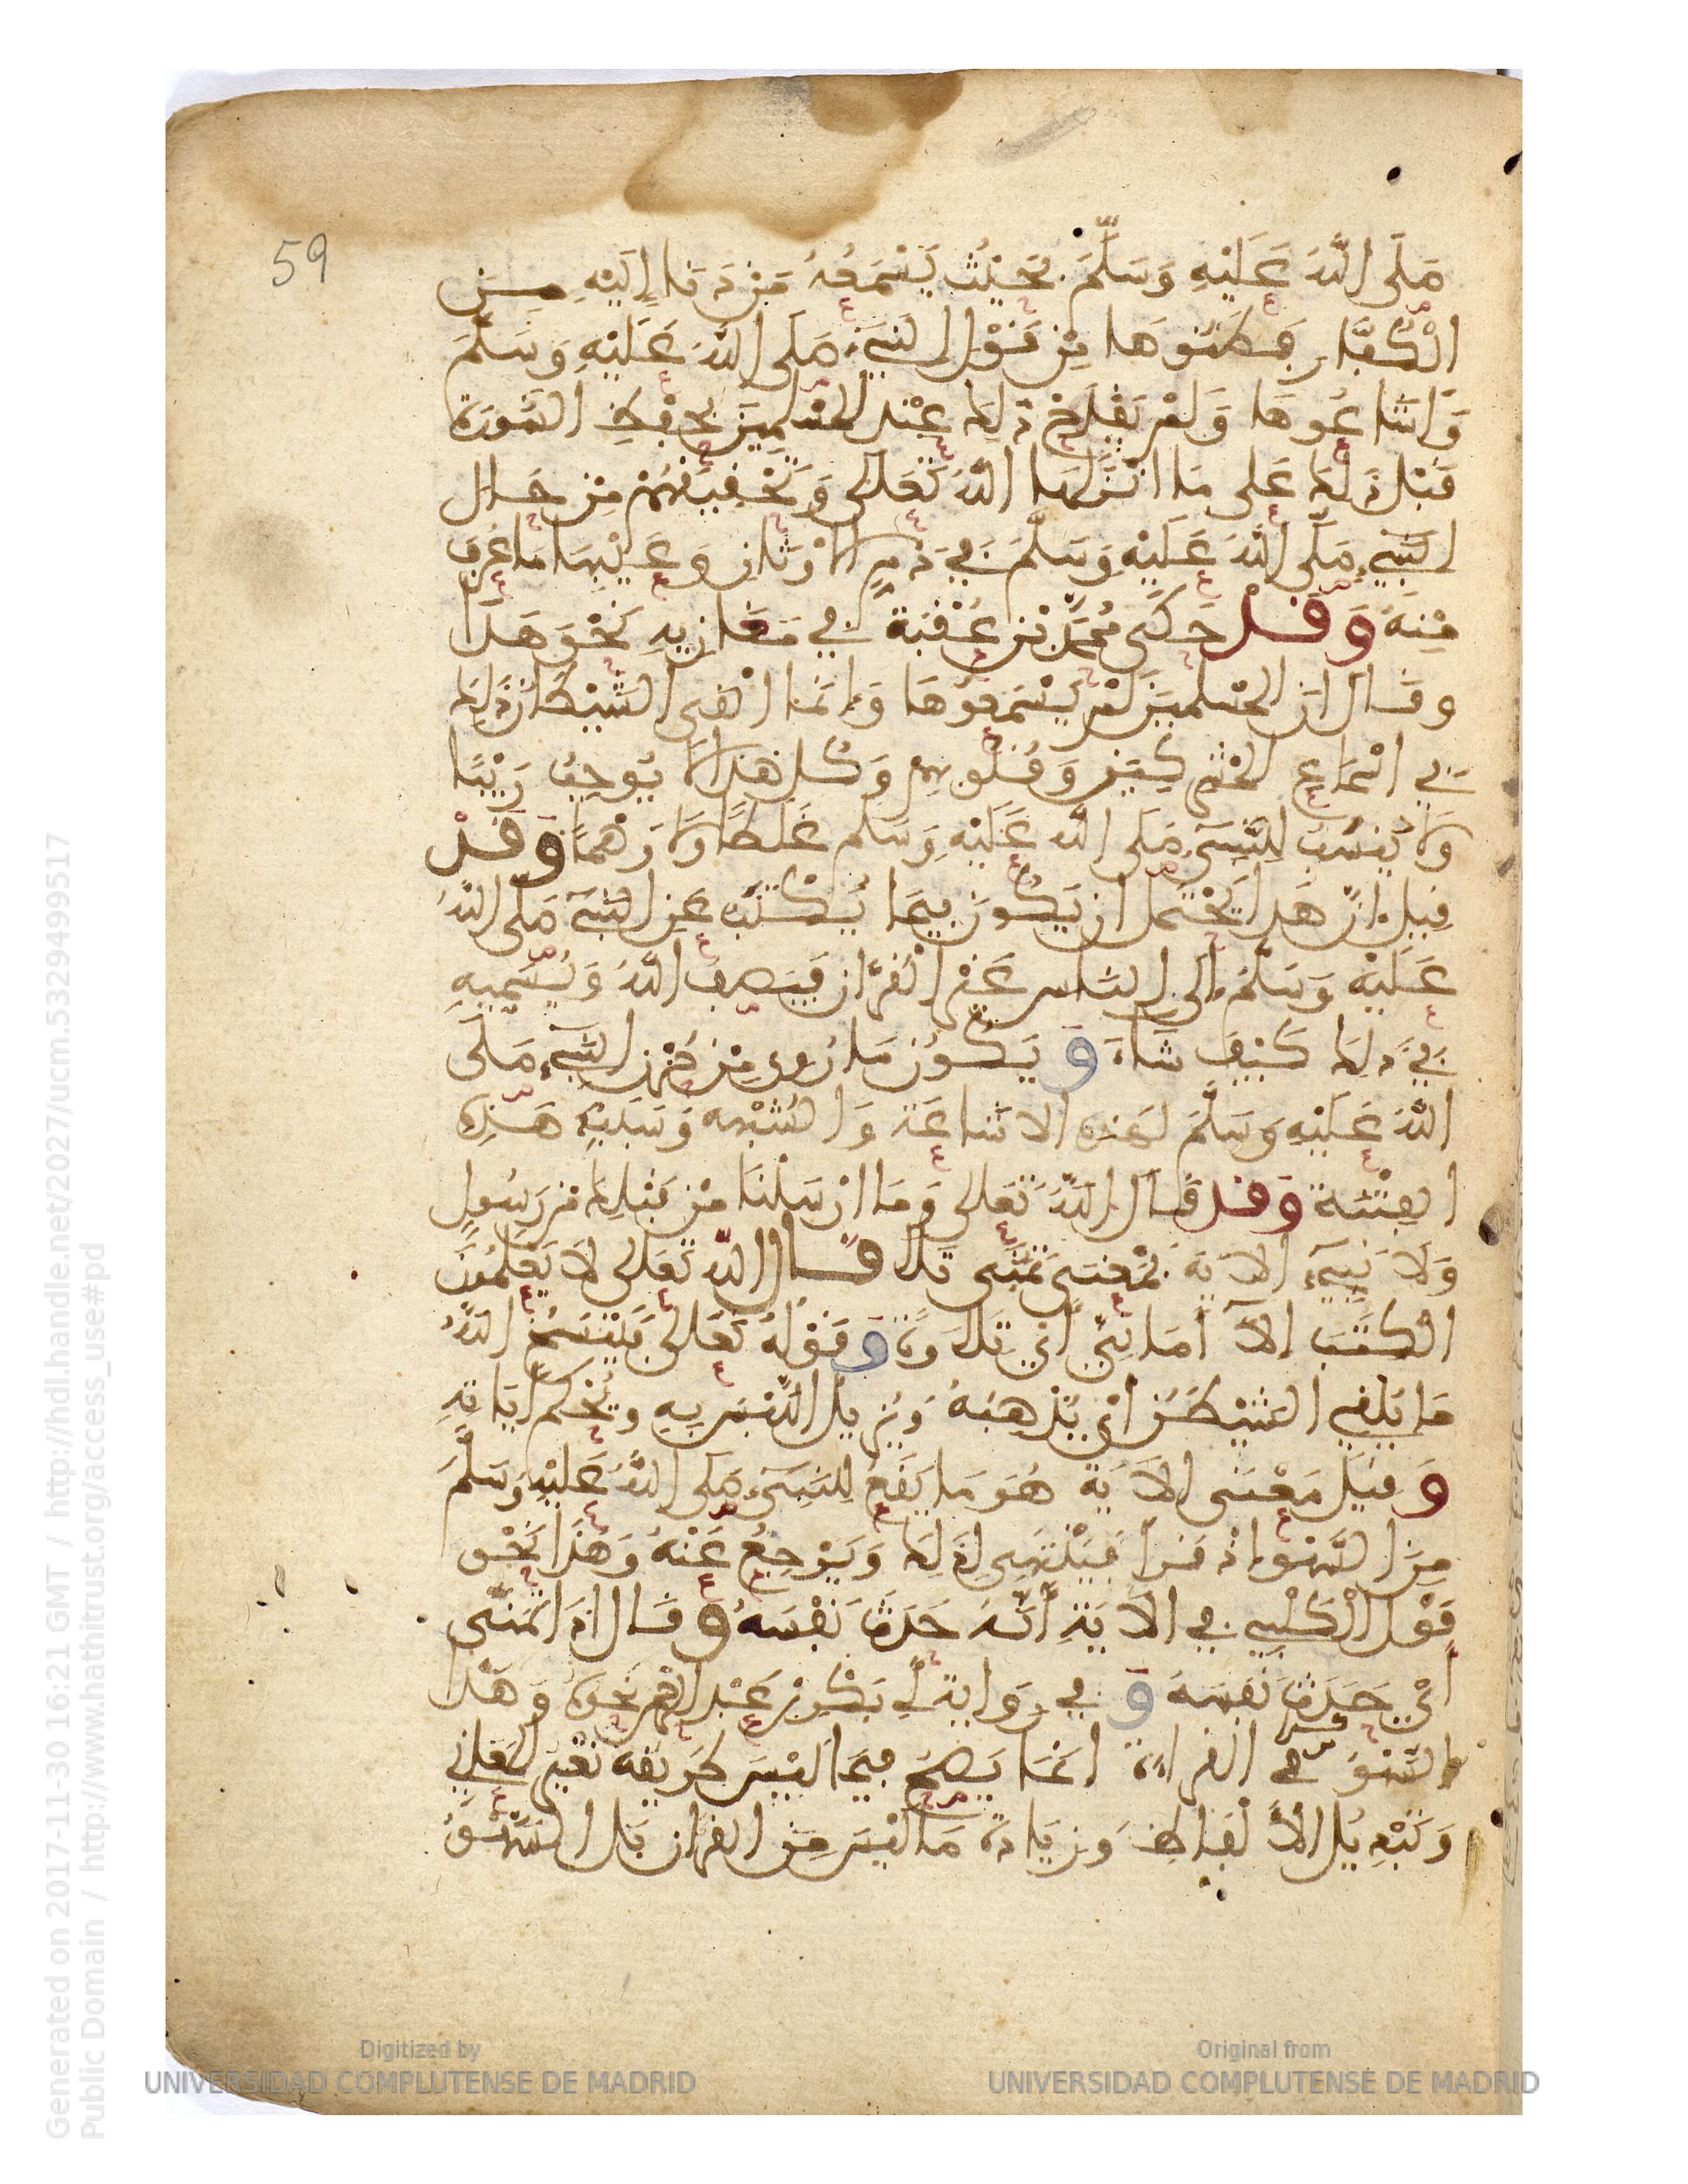 59
صَلَى اللَّهُ عَلَيْهِ وَسَلَّمَ بحَيْثُ يَسْمَعُهُ مَنْ دَنَا إِلَيْهِ مِـن
الْكُفَّار فَظَنُّوهَا مِن قَوْلِ النَّبِيِّ صَلَى اللَّهُ عَلَيْهِ وَسَلَّمَ
وَأَشَاعُوهَا وَلَمْ يَقْدَحْ ذَلِكَ عِنْدَ المُسْلِمِينَ بحِفْظِ السُّورَة
قَبْلَ ذَلِكَ عَلى مَا انْزَلَهَا اللَّهُ تَعَالَى وَتَحْقِيقِهِمْ مِنْ حَالِ
النَّبِيِّ صَلَّى اللَّهُ عَلَيْهِ وَسَلَّمَ فِي ذَمِّ الأَوْثَانِ وعَيْبِهَا مَا عُرِفَ
مِنْهُ وَقَدْ حَكَى مُحَمَّدُ بْن عُقْبَة فِي مَغَازِيهِ نَحْوَ هَذَا
وقَالَ ان المُسْلِمِينَ لَمْ يَسْمَعُوهَا وَإِنَّمَا الْقَى الشَّيْطَانُ ذَلِكَ
فِي اسْمَاعِ المُشْرِكِينَ وَقُلُوبِهِمْ وَكُل هَذَا لَا يُوجِبُ رَيْبًا
وَلَا يَنْسُبُ لِلنَّبِيِّ صَلَى اللَّه عَلَيْهِ وَسَلم غَلَطًا وَلَا وَهْمًا وَقَدْ
قِيلَ انَّ هَذَا يَحْتَمِلُ ان يَكُونَ فِيمَا يَكْتُبُه عَنِ النَّبِيِّ صَلَى اللَّهُ
عَلَيْهِ وَسَلَّمَ إلَى النَّاس غَيْر الْقُرْآن فَيَصِفُ اللَّهُ وَيُسَمِّيهِ
فِي ذَلِكَ كَيْفَ شَاءَ وَ يَكُونُ مَا رُوِيَ مِنْ النَّبِيِّ صَلَى
اللَّهُ عَلَيْهِ وَسَلَّمَ لهَذِهِ الاشَاعَة وَالشُّبْهَه وَسَبَبِ هَذِهِ
الفِتْنَة وَقد قَالَ اللَّهُ تَعَالى وَمَا ارْسَلْنَا مِنْ قَبْلِكَ مِن رَسُولٍ
وَلَا نَبِيٍّ الآيَةَ فَمَعْنَى تَمَنَّى تَلَا قَـالَ اللَّه تَعَالى لَا يَعْلَمُونَ
الْكِتَبَ إلَّا أَمَانِيَّ أَي تِلَاوَةً وَقَوْلهُ تَعَالَى فَيَنْسَخُ اللَّهُ
مَا يُلْقِي الشَّيْطَنُ أيْ يُذْهِبُهُ وَيُزِيلُ اللَّبْسَ بِهِ ويُحْكِمُ آيَاتِهِ
وَقِيلَ مَعْنَى الآيَةِ هُوَ مَا يَقَعُ لِلنَّبِيِّ صَلَى اللَّهُ عَلَيْهِ وَسَلَّمَ
مِنَ السَّهْوِ إِذْ قَرَأَ فَيَنْتَبِهِ لِذَلِكَ وَيَرْجِعُ عَنْهُ وَهَذَا نَحْو
قَوْلِ الْكَلْبِيِّ فِي الآيَةِ أَنَّهُ حَدَّثَ نَفْسَهُ وَقَالَ اذَا تَمَنَّى
أَيْ حَدَّثَ نَفْسَهُ وَ فِي رِوَايَةِ أَبِي بَكْر بْن عَبْد الرحمن نَحْوَهُ وَهَذَا
السَّهْوُ فِي القراءَة انمَا يَصِحُّ فِيمَا لَيْسَ طَرِيقُهُ تَغْيِيرَ المَعَانِي
وَتَبْدِيلَ الْأَلْفَاظِ وَزِيَادَةَ مَا لَيْسَ مِن القرآن بَل السَّهْوُ
Digitized by
UNIVERSIDAD COMPLUTENSE DE MADRID
Original from
UNIVERSIDAD COMPLUTENSE DE MADRID
Generated on 2017-11-30 16:21 GMT / http://hdl.handle.net/2027/ucm.5329499517
Public Domain / http://www.hathitrust.org/access_use#pd